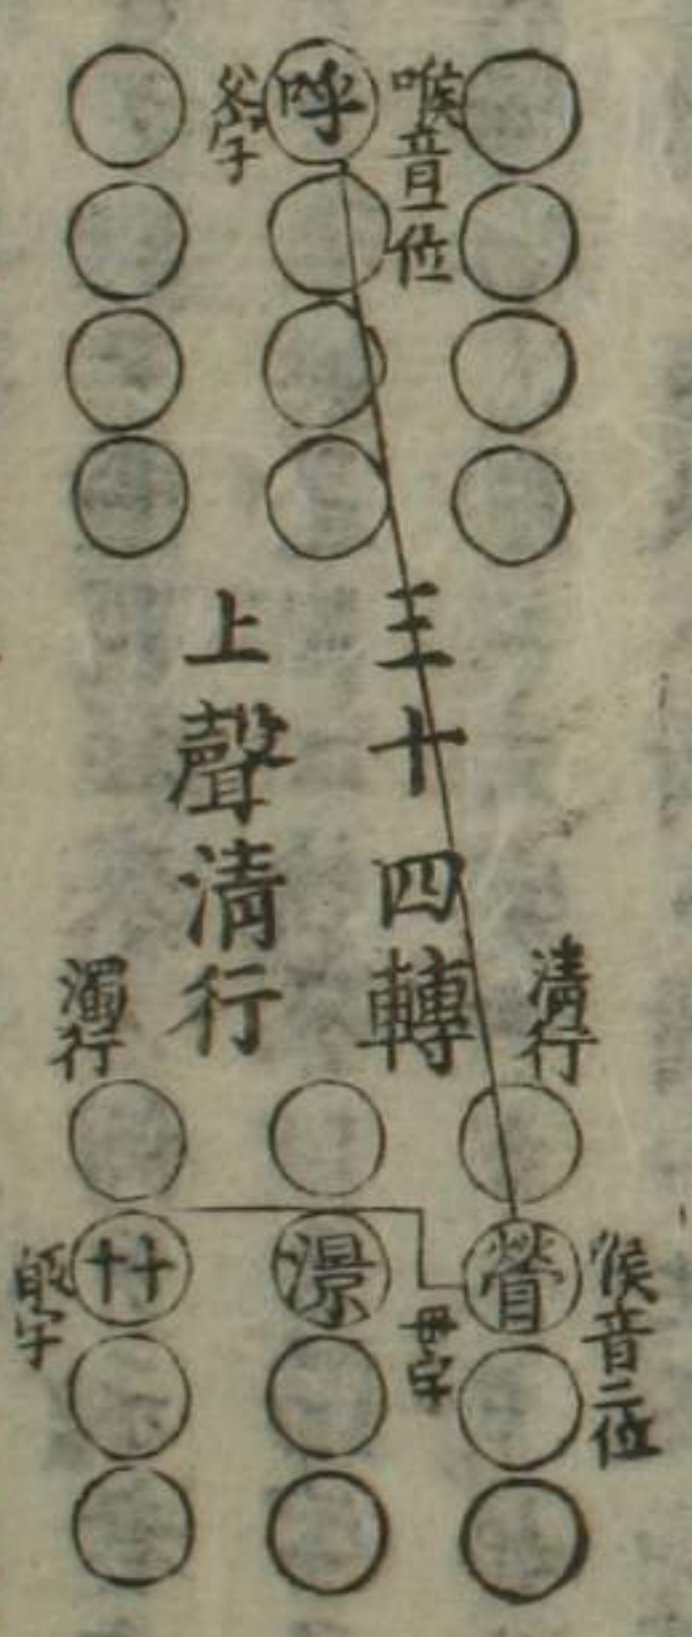 喉音一位
呼
父字
三十四轉
上聲清行
清行
濁行
喉音二位
營
母字
澋
卝
皈字